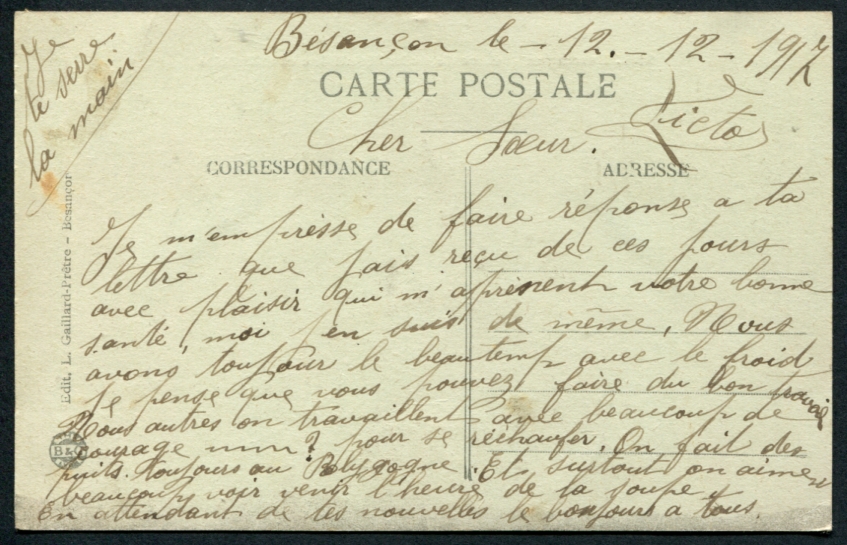 Bésançon le - 12. - 12 - 1917
CARTE POSTALE
Cher Sœur. Victor
CORRESPONDANCE
ADRESSE
Je m'emprèsse de faire réponse a ta
lettre que jais reçu de ces jours
avec plaisir qui m'apprènent votre bonne
santé, moi j'en suis de même. Nous
avons toujour le beautemp avec le froid
Je pense que vous pouvez faire du bon travail
Nous autres on travaillent avec beaucoup de
courage ? pour se réchaufer. On fait des
puits toujours au Polygogne. Et surtout on aime
beaucoup voir venir l'heure de la soupe.
En attendant de tes nouvelles le bonjours a tous.
Je
te serre
la main
Edit. L. Gaillard-Prêtre - Besançon
B&G